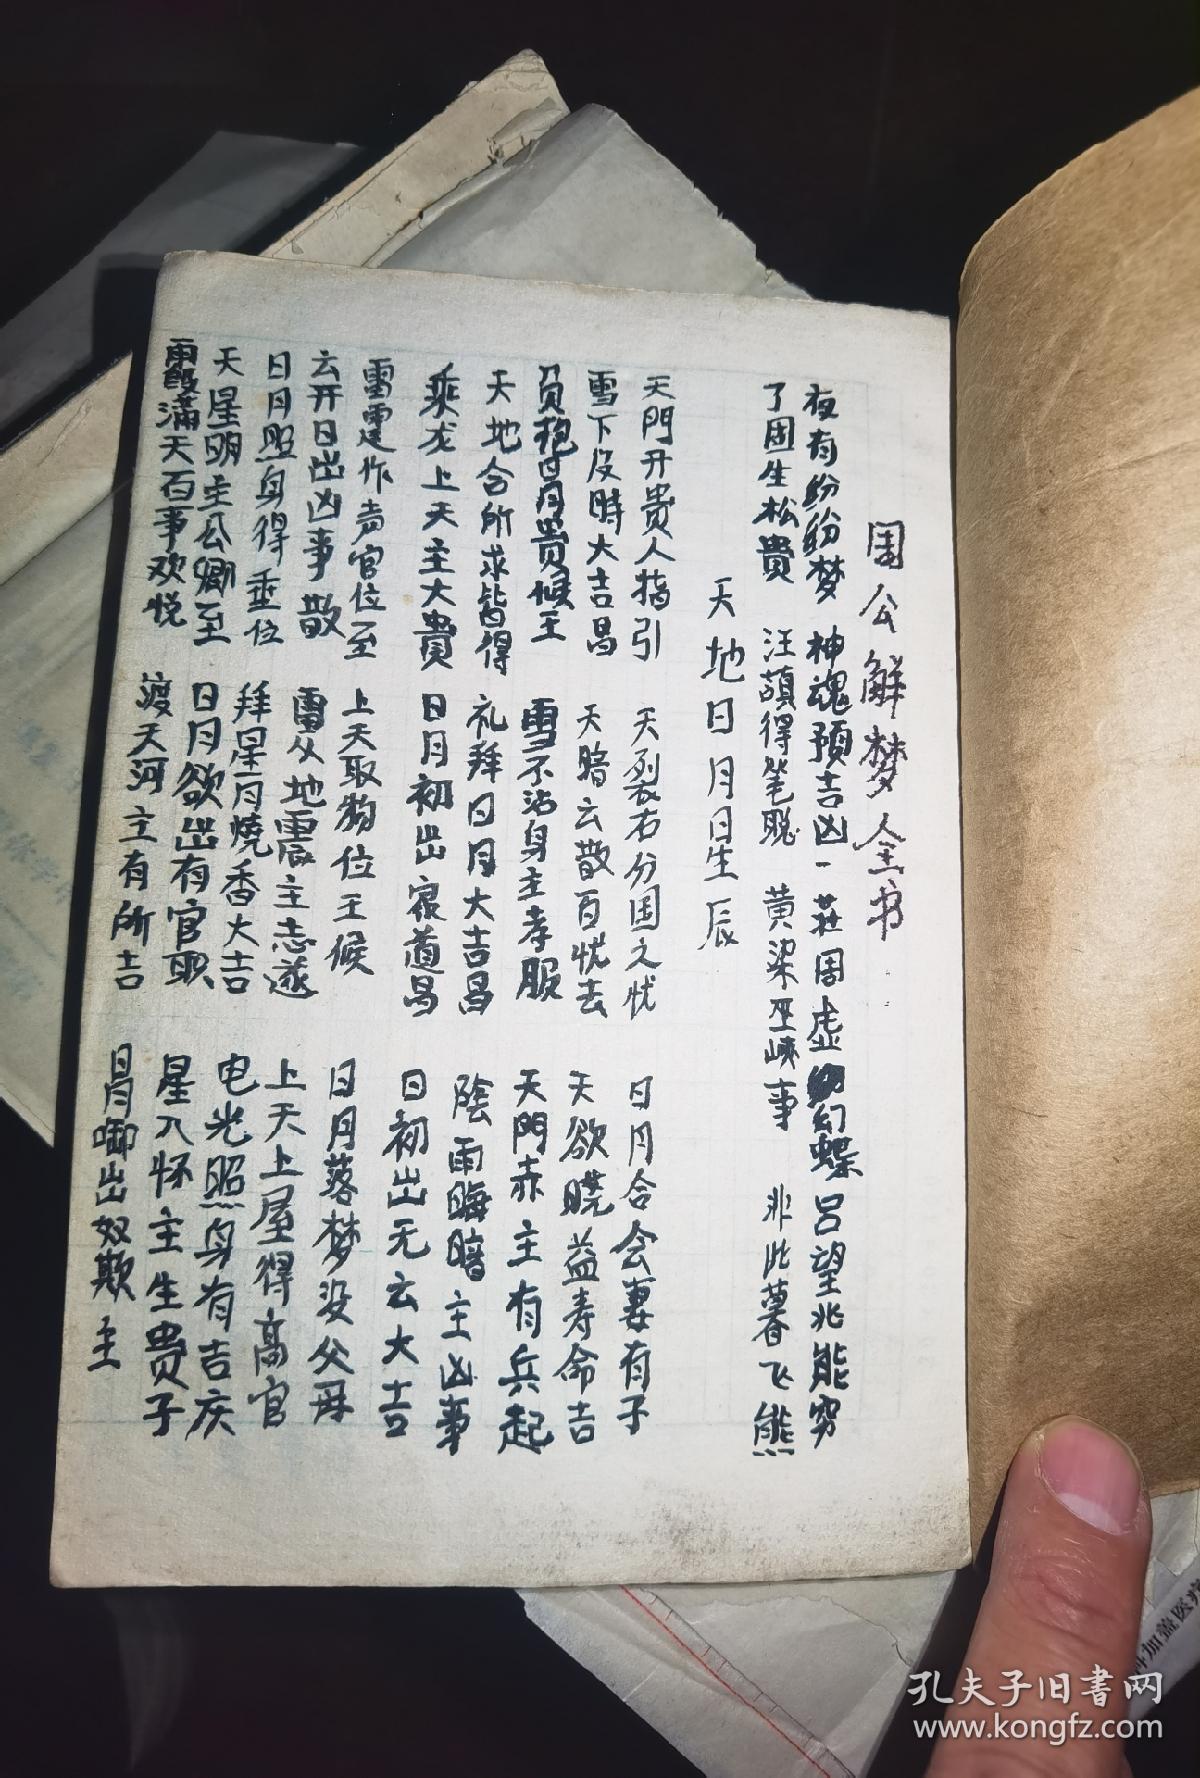 周公解梦全书
夜有纷纷梦 神魂预吉凶一庄周虚幻蝶吕望兆能穷
了周生松贵 汪蘋得笔聪 黄梁巫峡事 非此莫飞熊
天地日月日生辰
天門开贵人指引 天裂右分国之忧 日月合会妻有子
雪下及時大吉昌 天暗云散百忧去 天欲曉益寿命吉
負抱日月贵候主 雪不沾身主孝服 天門赤主有兵起
天地合所求皆得 礼拜日月大吉昌 陰雨晦暗主凶事
乘龙上天主大貴 日月初出家道昌 日初出无云大吉
雷霆作声官位至 上天取物位王候 日月落梦没父母
云开日出凶事散 雷从地震主志遂 上天上屋得高官
日月照身得重位 拜星月燒香大吉 电光照身有吉庆
天星明主公卿至 日月欲出有官职 星入怀主生贵子
霞满天百事欢悦 渡天河主有所吉 月啣出奴欺主
孔夫子旧书网
www.kongfz.com
加盖医疗